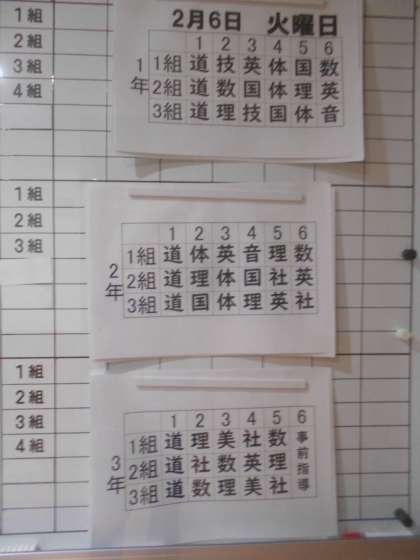 1組
2組
3組
4組
2月6日 火曜日
1 2 3 4 5 6
1年
1組 道 技 英 体 国 数
2組 道 数 国 体 理 英
3組 道 理 技 国 体 音
1組
2組
3組
1 2 3 4 5 6
2年
1組 道 体 英 音 理 数
2組 道 理 体 国 社 英
3組 道 国 体 理 英 社
1組
2組
3組
4組
1 2 3 4 5 6
3年
1組 道 理 美 社 数
2組 道 社 数 英 理
3組 道 数 理 美 社
事前指導